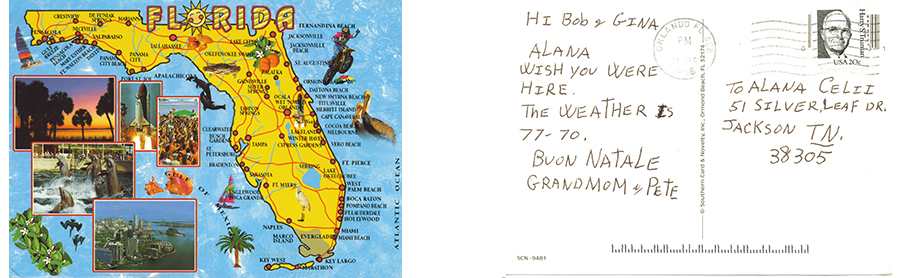 FLORIDA
CRESTVIEW
DE FUNIAK SPRINGS
MARIANNA
PENSACOLA
NICEVILLE
VALPARAISO
PANAMA CITY
PANAMA CITY BEACH
TALLAHASSEE
PORT ST. JOE
APALACHICOLA
LAKE CITY
FERNANDINA BEACH
JACKSONVILLE
JACKSONVILLE BEACH
ST. AUGUSTINE
PALATKA
GAINESVILLE
SILVER SPRINGS
OCALA
DAYTONA BEACH
NEW SMYRNA BEACH
TITUSVILLE
MERRITT ISLAND
CAPE CANAVERAL
COCOA BEACH
MELBOURNE
VERO BEACH
TARPON SPRINGS
LAKELAND
WINTER HAVEN
CYPRESS GARDENS
CLEARWATER
BUSCH GARDENS
ST. PETERSBURG
TAMPA
BRADENTON
SARASOTA
SEBRING
FT. PIERCE
LAKE OKEECHOBEE
ENGLEWOOD
BOCA GRANDE
FT. MYERS
WEST PALM BEACH
BOCA RATON
POMPANO BEACH
FT. LAUDERDALE
HOLLYWOOD
NAPLES
MARCO ISLAND
EVERGLADES
MIAMI
MIAMI BEACH
KEY LARGO
KEY WEST
MARATHON
OF
ATLANTIC OCEAN
HI BOB & GINA
ALANA
WISH YOU WERE
HIRE.
THE WEATHER IS
77-70.
BUON NATALE
GRANDMOM & PETE
SCN - 9481
© Southern Card & Novelty, Inc., Ormond Beach, FL 32174
ORLANDO FL
PM
Harry S. Truman
USA 20c
TO ALANA CELII
51 SILVER LEAF DR.
JACKSON TN.
38305